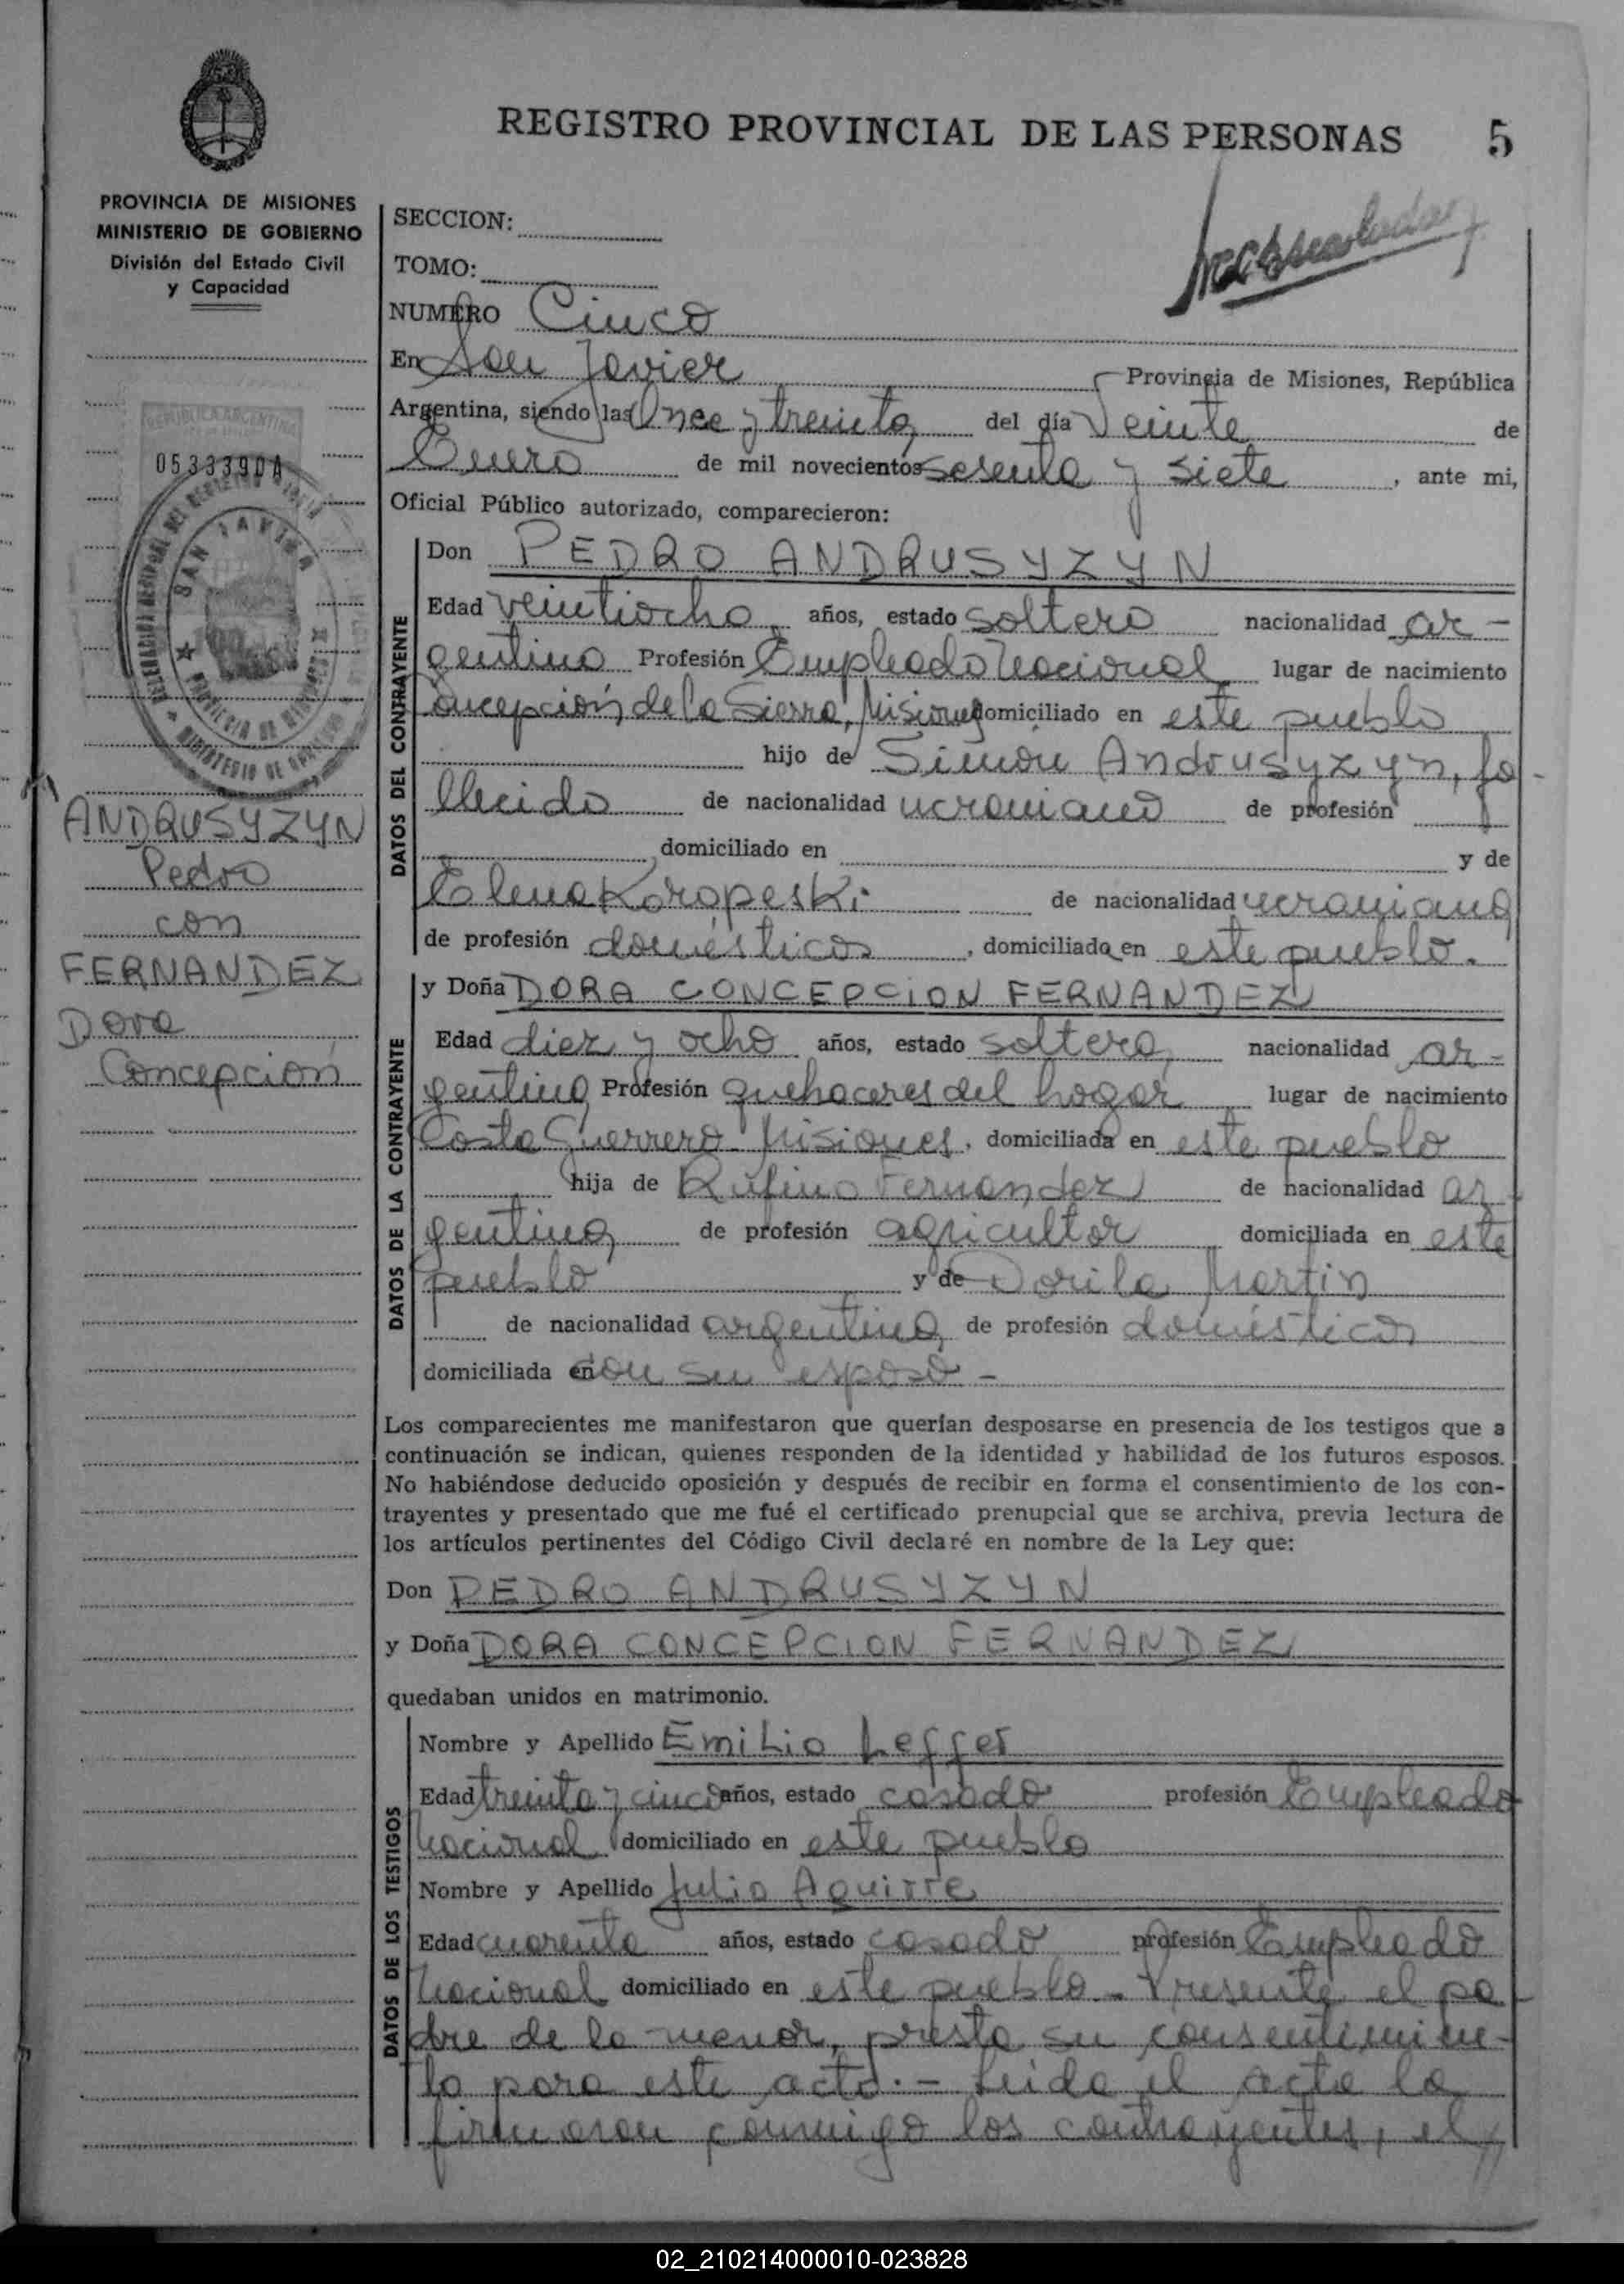 REGISTRO PROVINCIAL DE LAS PERSONAS 5
PROVINCIA DE MISIONES
MINISTERIO DE GOBIERNO
División del Estado Civil
y Capacidad
REPUBLICA ARGENTINA
0533390A
SAN JAVIER
PROVINCIA DE MISIONES
MINISTERIO DE GOBIERNO
ANDRUSYZYN
Pedro
con
FERNANDEZ
Dora
Concepción
SECCION:
TOMO:
NUMERO Cinco
En San Javier Provincia de Misiones, República
Argentina, siendo las Once y treinta del día Veinte de
Enero de mil novecientos sesenta y siete, ante mi,
Oficial Público autorizado, comparecieron:
DATOS DEL CONTRAYENTE
Don PEDRO ANDRUSYZYN
Edad veintiocho años, estado soltero nacionalidad ar-
gentino Profesión Empleado Nacional lugar de nacimiento
Concepción de la Sierra, Misiones domiciliado en este pueblo
hijo de Simón Andrusyzyn, fa-
llecido de nacionalidad ucraniano de profesión
domiciliado en y de
Elena Koropeski de nacionalidad ucraniana
de profesión domésticos, domiciliada en este pueblo.
DATOS DE LA CONTRAYENTE
y Doña DORA CONCEPCION FERNANDEZ
Edad diez y ocho años, estado soltera nacionalidad ar-
gentina Profesión quehaceres del hogar lugar de nacimiento
Costa Guerrero Misiones, domiciliada en este pueblo
hija de Rufino Fernandez de nacionalidad ar-
gentina de profesión agricultor domiciliada en este
pueblo y de Dorila Martin
de nacionalidad argentina de profesión domésticos
domiciliada en con su esposo -
Los comparecientes me manifestaron que querían desposarse en presencia de los testigos que a
continuación se indican, quienes responden de la identidad y habilidad de los futuros esposos.
No habiéndose deducido oposición y después de recibir en forma el consentimiento de los con-
trayentes y presentado que me fué el certificado prenupcial que se archiva, previa lectura de
los artículos pertinentes del Código Civil declaré en nombre de la Ley que:
Don PEDRO ANDRUSYZYN
y Doña DORA CONCEPCION FERNANDEZ
quedaban unidos en matrimonio.
DATOS DE LOS TESTIGOS
Nombre y Apellido Emilio Leffer
Edad treinta y cinco años, estado casado profesión Empleado
Nacional domiciliado en este pueblo
Nombre y Apellido Julio Aguirre
Edad cuarenta años, estado casado profesión Empleado
Nacional domiciliado en este pueblo. Presente el pa-
dre de la menor, presta su consentimien-
to para este acto.- Leida el acta la
firmaron conmigo los contrayentes, el//
02_210214000010-023828